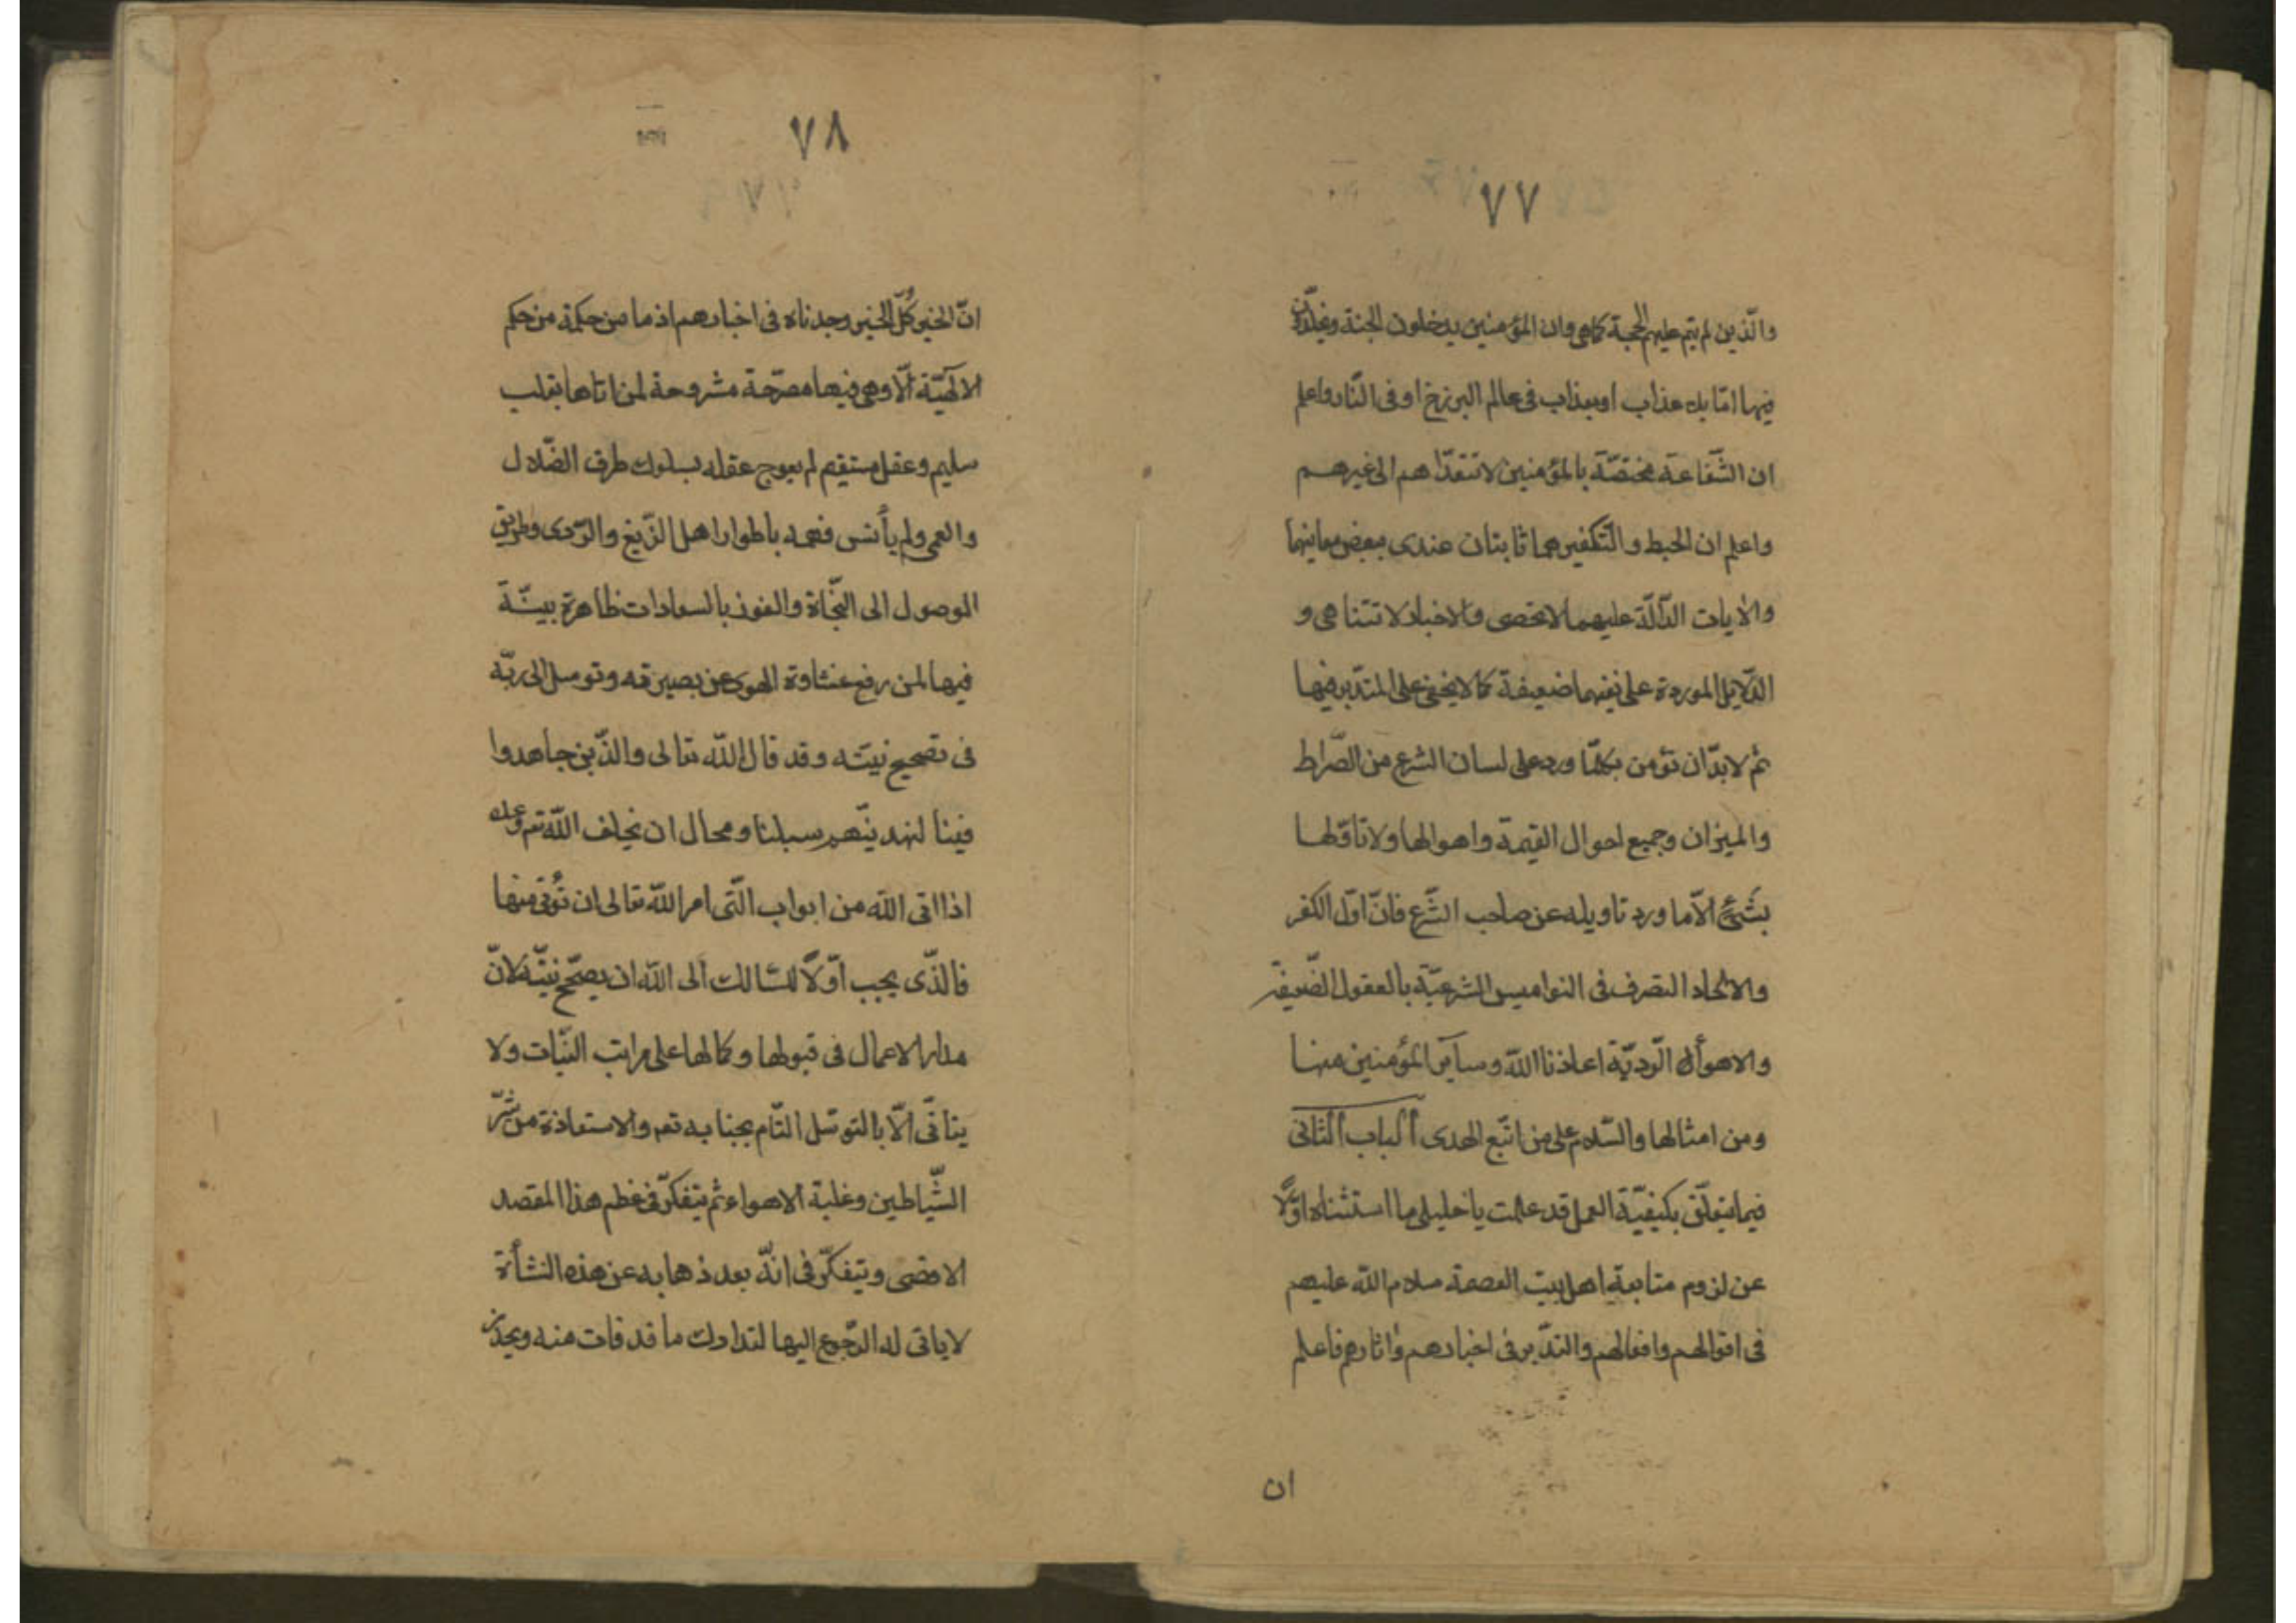 ٧٧
والّذين لم يتم عليهم الحجة كما هى وان المؤمنين يدخلون الجنة ويخلّدون
فيها امّا بلا عذاب او بعذاب فى عالم البرزخ او فى النّار واعلم
ان الشّفاعة مختصّة بالمؤمنين لا تتعدّاهم الى غيرهم
واعلم ان الحبط والتّكفير هما ثابتان عندى ببعض معانيهما
والايات الدآلّة عليهما لا تحصى والاخبار لا تتناهى و
الدّلايل الموردة على نفيهما ضعيفة كما لا يخفى على المتدّبر فيها
ثم لا بدّ ان تؤمن بكلّما ورد على لسان الشرع من الصّراط
والميزان وجميع احوال القيمة واهوالها ولا تاوّلها
بشئ الّا ما ورد تاويله عن صاحب الشّرع فانّ اوّل الكفر
والالحاد التصرف فى النواميس الشرعيّة بالعقول الضّعيفة
والاهواء الرّديّة اعاذنا الله وساير المؤمنين منها
ومن امثالها والسّلام على من اتّبع الهدى الباب الثانى
فيما يتعلّق بكيفيّة العمل قد علمت يا خليلى ما استثناه اوّلًا
عن لزوم متابعة اهل بيت العصمة سلام الله عليهم
فى اقوالهم وافعالهم والتدّبر فى اخبارهم واثارهم فاعلم
ان
٧٨
انّ الخير كُلّ الخير وجدناه فى اخبارهم اذ ما من حكمة من حكم
الالٓهيّة الّا وهى فيها مصرّحة مشروحة لمن اتاها بقلب
سليم وعقل مستقيم لم يعوج عقله بسلوك طرق الضّلال
والعمى ولم يأنس فهمه باطوار اهل الزّيغ والرّدى وطريق
الوصول الى النّجاة والفوز بالسعادات ظاهرة بينّة
فيها لمن رفع غشاوة الهوى عن بصيرته وتوسل الى ربّه
فى تصحيح نيّته وقد قال الله تعالى والذّين جاهدوا
فينا لنهدينّهم سبلنا ومحال ان يخلف الله تعـ وعده
اذا اتى الله من ابواب الّتى امر الله تعالى ان تُؤتى منها
فالذّى يجب اوّلًا للسّالك الى الله ان يصحّح نيّته لانّ
مدار الاعمال فى قبولها وكمالها على مراتب النيّات ولا
يتاتّى الّا بالتوسّل التّام بجنابه تعـ والاستعاذة من شرّ
الشّياطين وغلبة الاهواء ثم يتفكّر فى عظم هذا المقصد
الاقصى ويتفكّر فى انّه بعد ذهابه عن هذه النشأة
لا ياتى له الرّجوع اليها لتدارك ما قد فات منه ويحذر